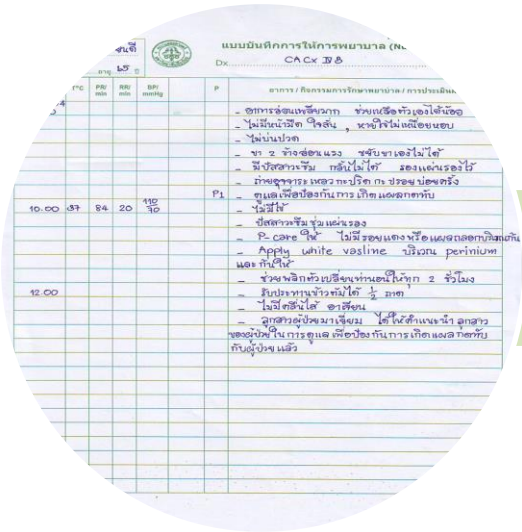 แบบบันทึกการให้การพยาบาล (Nu
Dx. CA Cx IV B
อายุ 65 ปี
T°C PR/min RR/min BP/mmHg P อาการ / กิจกรรมการรักษาพยาบาล / การประเมินผล
- อาการอ่อนเพลียมาก ช่วยเหลือตัวเองได้น้อย
- ไม่มีหน้ามืด ใจสั่น , หายใจไม่เหนื่อยหอบ
- ไม่บ่นปวด
- ขา 2 ข้างอ่อนแรง ขยับขาเองไม่ได้
- มีปัสสาวะซึม กลั้นไม่ได้ รองแผ่นรองไว้
- ถ่ายอุจจาระเหลวกะปริดกะปรอยบ่อยครั้ง
P1 - ดูแลเพื่อป้องกันการเกิดแผลกดทับ
10.00 37 84 20 110/70 - ไม่มีไข้
- ปัสสาวะซึมชุ่มแผ่นรอง
- P-care ให้ ไม่มีรอยแดงหรือแผลถลอกบริเวณก้น
- Apply white vasline บริเวณ perinium
และก้นให้
- ช่วยพลิกตัวเปลี่ยนท่านอนให้ทุก 2 ชั่วโมง
12.00 - รับประทานข้าวต้มได้ ½ ถาด
- ไม่มีคลื่นไส้ อาเจียน
- ลูกสาวผู้ป่วยมาเยี่ยม ได้ให้คำแนะนำลูกสาว
ของผู้ป่วยในการดูแลเพื่อป้องกันการเกิดแผลกดทับ
กับผู้ป่วยแล้ว